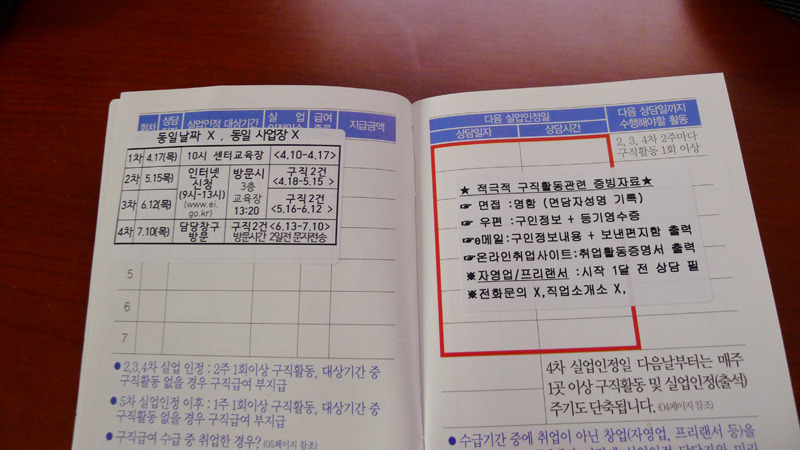 상담
실업인정 대상기간
실 업
급여
지급금액
동일날짜 X , 동일 사업장 X
1차 4.17(목) 10시 센터교육장 <4.10-4.17>
2차 5.15(목) 인터넷 신청 (9시-13시) (www.ei.go.kr) 방문시 3층 교육장 13:20 구직2건 <4.18-5.15 >
3차 6.12(목) 구직2건 <5.16-6.12 >
4차 7.10(목) 담당창구 방문 구직2건 <6.13-7.10> 방문시간 2일전 문자전송
5
6
7
● 2,3,4차 실업 인정 : 2주 1회이상 구직활동, 대상기간 중
구직활동 없을 경우 구직급여 부지급
● 5차 실업인정 이후 : 1주 1회이상 구직활동, 대상기간 중
구직활동 없을 경우 구직급여 부지급
● 구직급여 수급 중 취업한 경우? (05페이지 참조)
다음 실업인정일
상담일자 상담시간
다음 상담일까지
수행해야할 활동
2, 3, 4차 2주마다
구직활동 1회 이상
★ 적극적 구직활동관련 증빙자료★
☞ 면접 :명함 (면담자성명 기록)
☞ 우편 :구인정보 + 등기영수증
☞e메일:구인정보내용 + 보낸편지함 출력
☞온라인취업사이트:취업활동증명서 출력
※자영업/프리랜서 :시작 1달 전 상담 필
※전화문의 X,직업소개소 X,
4차 실업인정일 다음날부터는 매주
1곳 이상 구직활동 및 실업인정(출석)
주기도 단축됩니다. (04페이지 참조)
● 수급기간 중에 취업이 아닌 창업(자영업, 프리랜서 등)을